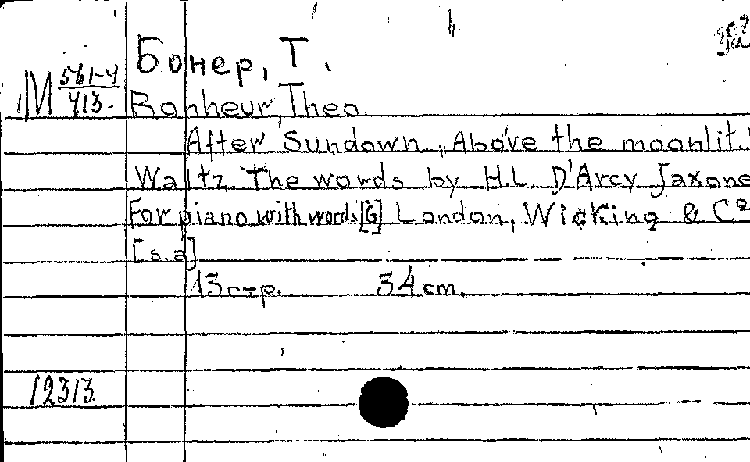 Бонер, Т.
М 561-4/413.
Bonheur, Theo
After Sundown, Above the moonlit.
Waltz The words by H.L. D'Arcy Jaxone
For piano with words [G] London, Wicking & Cº
[s.a]
13 стр. 34 cm.
12313